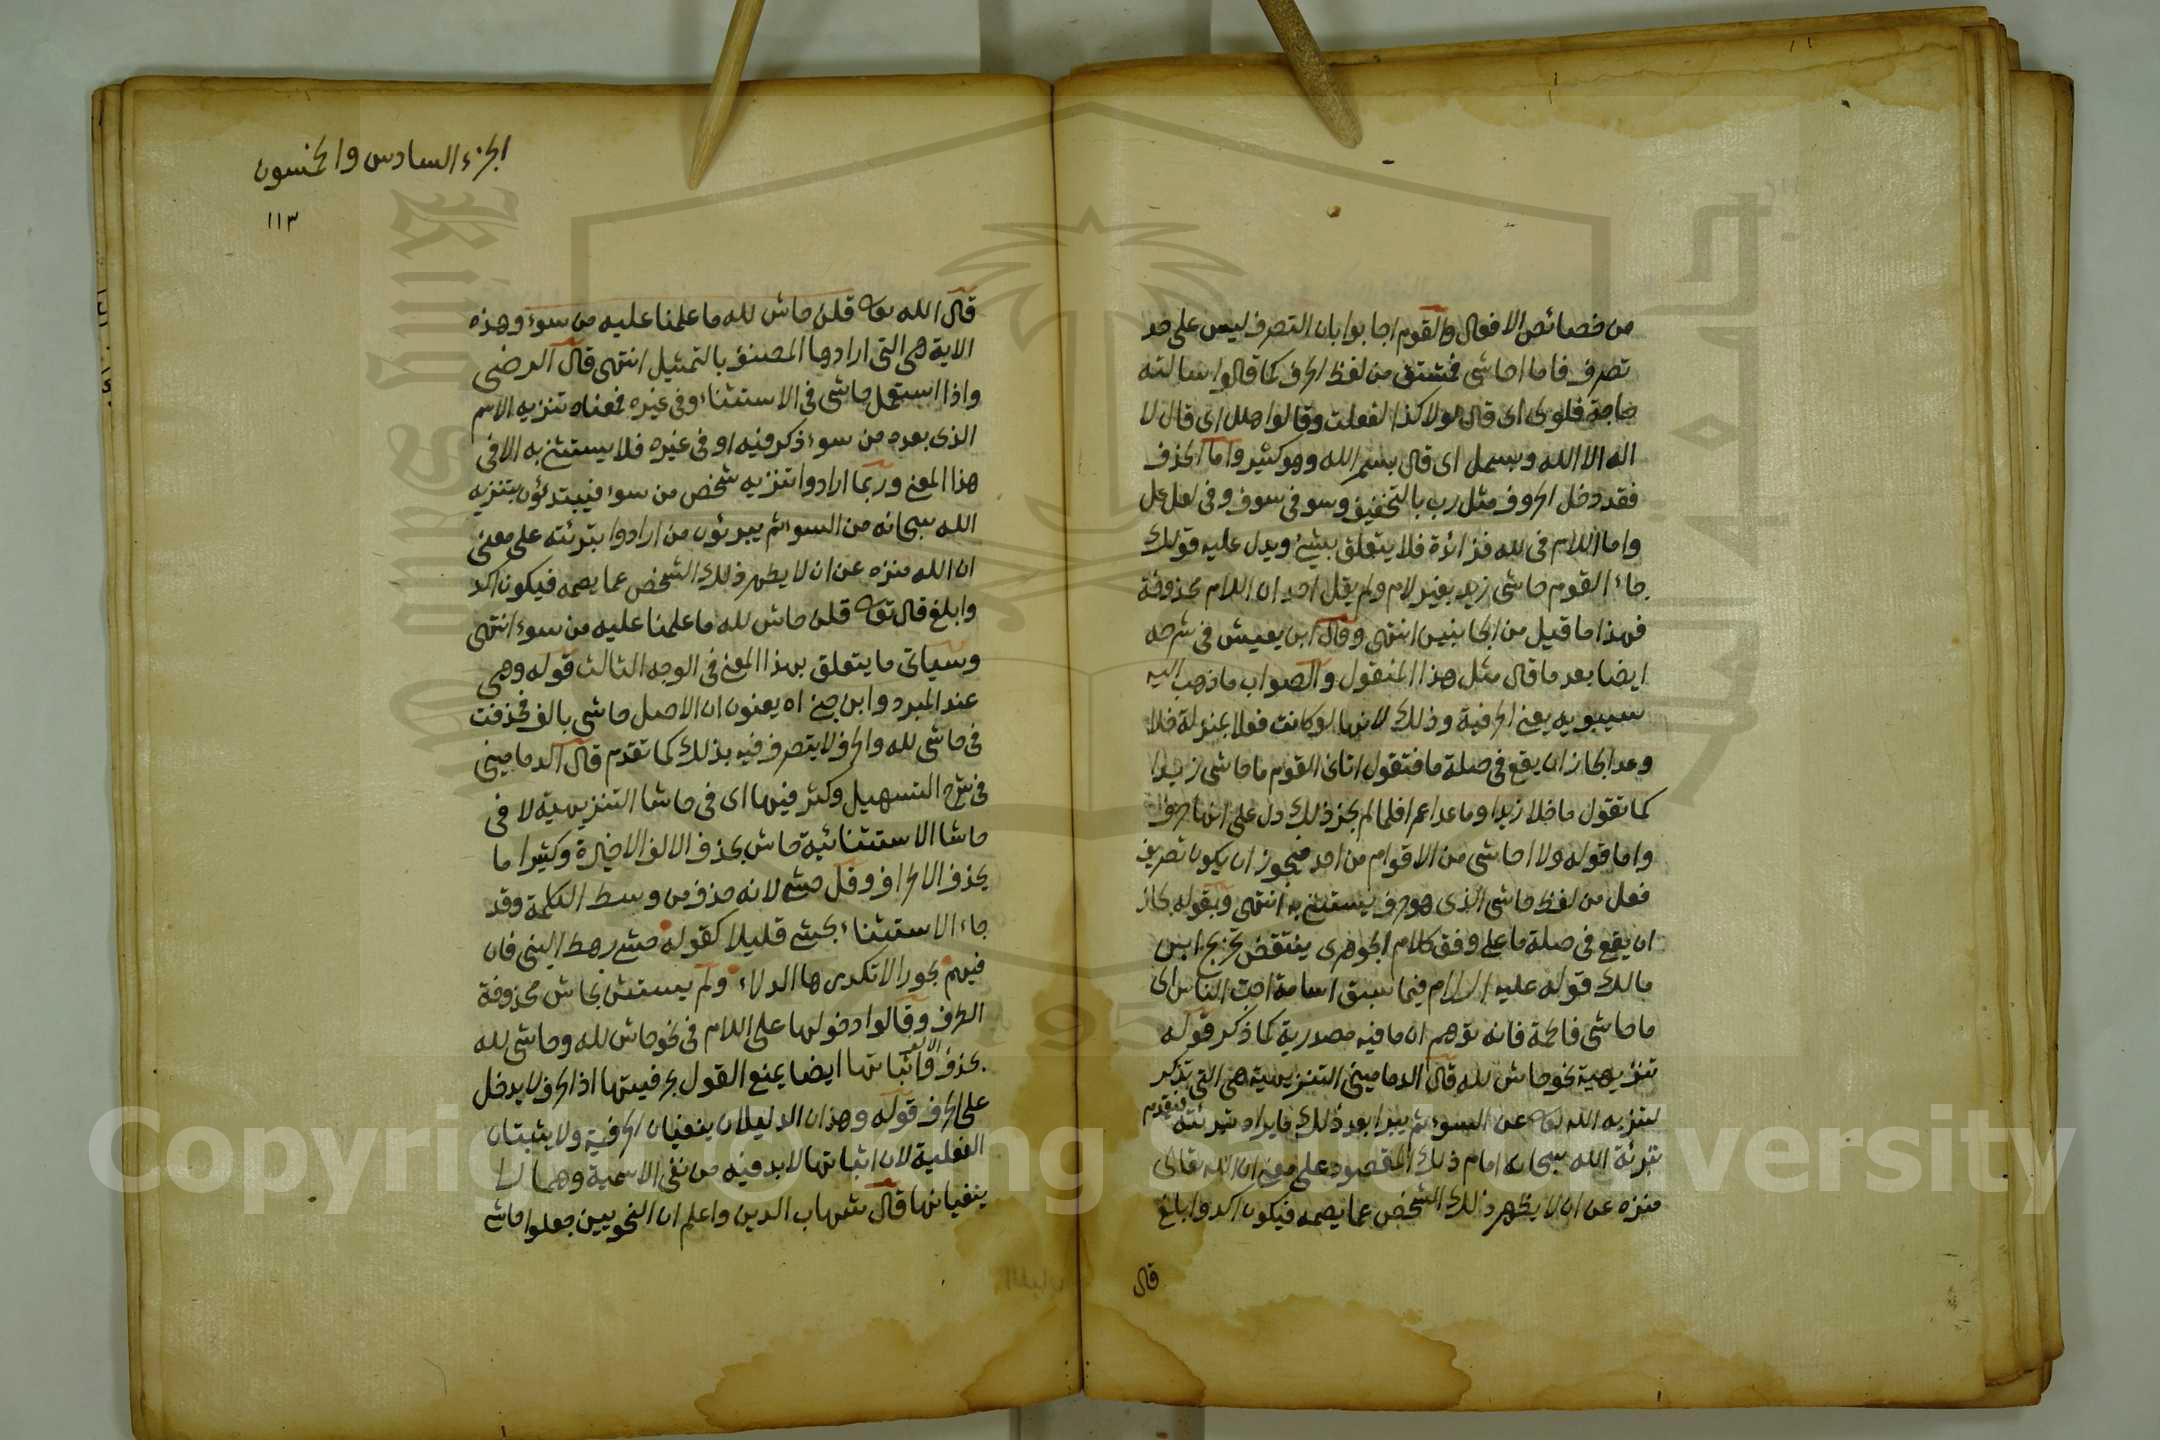 من خصائص الافعال والقوم اجابوا بان التصرف ليس على حد
تصرف فاما احاشى فمشتق من لفظ الحرف كما قالوا سالته
حاجة فلولى اى قال لولا كذا لفعلت وقالوا هلل اى قال لا
اله الا الله وبسمل اى قال بسم الله وهو كثير واما الحذف
فقد دخل الحروف مثل رب بالتخفيف وسو فى سوف وفى لعل عل
واما اللام فى لله فزائدة فلا يتعلق بشئ ويدل عليه قولك
جاء القوم حاشى زيد بغير لام ولم يقل احد ان اللام محذوفة
فهذا ما قيل من الجانبين انتهى وقال ابن يعيش فى شرحه
ايضا بعد ما قال مثل هذا المنقول والصواب ما ذهب اليه
سيبويه يعنى الحرفية وذلك لانها لو كانت فعلا بمنزلة خلا
وعدا لجاز ان يقع فى صلة ما فتقول اتانى القوم ما حاشى زيدا
كما تقول ما خلا زيدا وما عدا عمرا فلما لم يجز ذلك دل على انها حرف
واما قوله ولا احاشى من الاقوام من احد فيجوز ان يكون تصريف
فعل من لفظ حاشى الذى هو حرف يستثنى به انتهى وبقوله لجاز
ان يقع فى صلة ما على وفق كلام الجوهرى ينتقض تخريج ابن
مالك قوله عليه السلام فيما سبق اسامة احب الناس الى
ما حاشى فاطمة فانه توهم ان ما فيه مصدرية كما ذكر قوله
تنزيهية نحو حاش لله قال الدمامينى التنزيهية هى التى تذكر
لتنزيه الله تعا عن السوء ثم يبرا بعد ذلك ما يراد تبرئته فتقدم
تبرئة الله سبحانه امام ذلك المقصود على معنى ان الله تعالى
منزه عن ان لا يظهر ذلك الشخص عما يصمه فيكون اكد وابلغ
قال
الجزء السادس والخمسون
١١٣
قال الله تعا قلن حاش لله ما علمنا عليه من سوء وهذه
الاية هى التى ارادها المصنف بالتمثيل انتهى قال الرضى
واذا استعمل حاشى فى الاستثناء وفى غيره فمعناه تنزيه الاسم
الذى بعده من سوء ذكر فيه او فى غيره فلا يستثنى به الا فى
هذا المعنى وربما ارادوا تنزيه شخص من سوء فيبتدئون بتنزيه
الله سبحانه من السوء ثم يبرئون من ارادوا تبرئته على معنى
ان الله منزه عن ان لا يطهر ذلك الشخص عما يصمه فيكون اكد
وابلغ قال تعا قلن حاش لله ما علمنا عليه من سوء انتهى
وسياتى ما يتعلق بهذا المعنى فى الوجه الثالث قوله وهى
عند المبرد وابن جنى اه يعنون ان الاصل حاشى بالف فحذفت
فى حاشى لله والحرف لا يتصرف فيه بذلك كما تقدم قال الدمامينى
فى شرح التسهيل وكثر فيها اى فى حاشا التنزيهية لا فى
حاشا الاستثنائية حاش بحذف الالف الاخيرة وكثيرا ما
يحذف الاحراف وقل حشى لانه حذف من وسط الكلمة وقد
جاء الاستثناء بحشى قليلا كقوله حشى رهط النبى فان
فيهم بحورا لا تكدرها الدلاء ولم يستثن بحاش محذوفة
الطرف وقالوا دخولها على اللام فى نحو حاش لله وحاشى لله
بحذف الالف واثباتها ايضا يمنع القول بحرفيتها اذ الحرف لا يدخل
على الحرف قوله وهذان الدليلان ينفيان الحرفية ولا يثبتان
الفعلية لان اثباتها لا بد فيه من نفى الاسمية وهما لا
ينفيانها قال شهاب الدين واعلم ان النحويين جعلوا حاشى
Copyright © King Saud University